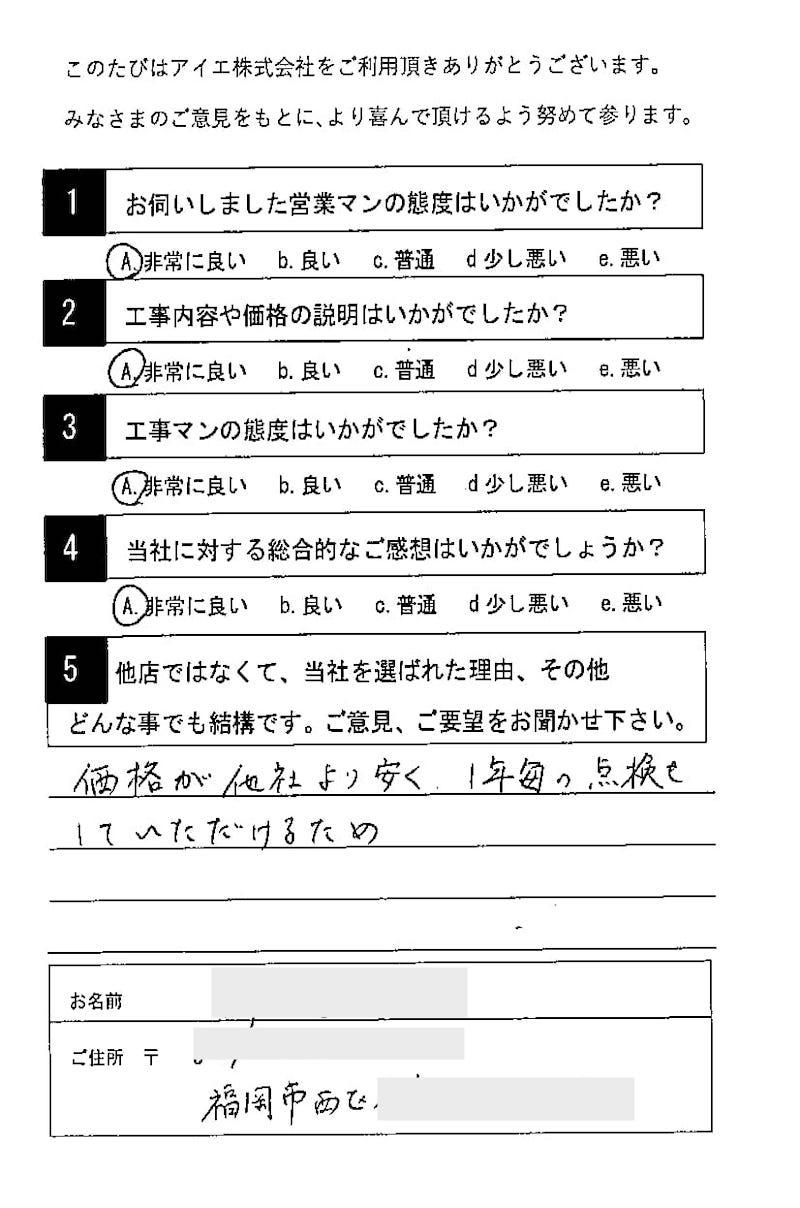 このたびはアイエ株式会社をご利用頂きありがとうございます。
みなさまのご意見をもとに、より喜んで頂けるよう努めて参ります。
1 お伺いしました営業マンの態度はいかがでしたか？
A.非常に良い b.良い c.普通 d少し悪い e.悪い
2 工事内容や価格の説明はいかがでしたか？
A.非常に良い b.良い c.普通 d少し悪い e.悪い
3 工事マンの態度はいかがでしたか？
A.非常に良い b.良い c.普通 d少し悪い e.悪い
4 当社に対する総合的なご感想はいかがでしょうか？
A.非常に良い b.良い c.普通 d少し悪い e.悪い
5 他店ではなくて、当社を選ばれた理由、その他
どんな事でも結構です。ご意見、ご要望をお聞かせ下さい。
価格が他社より安く、1年毎の点検も
していただけるため
お名前
ご住所 〒
福岡市西区